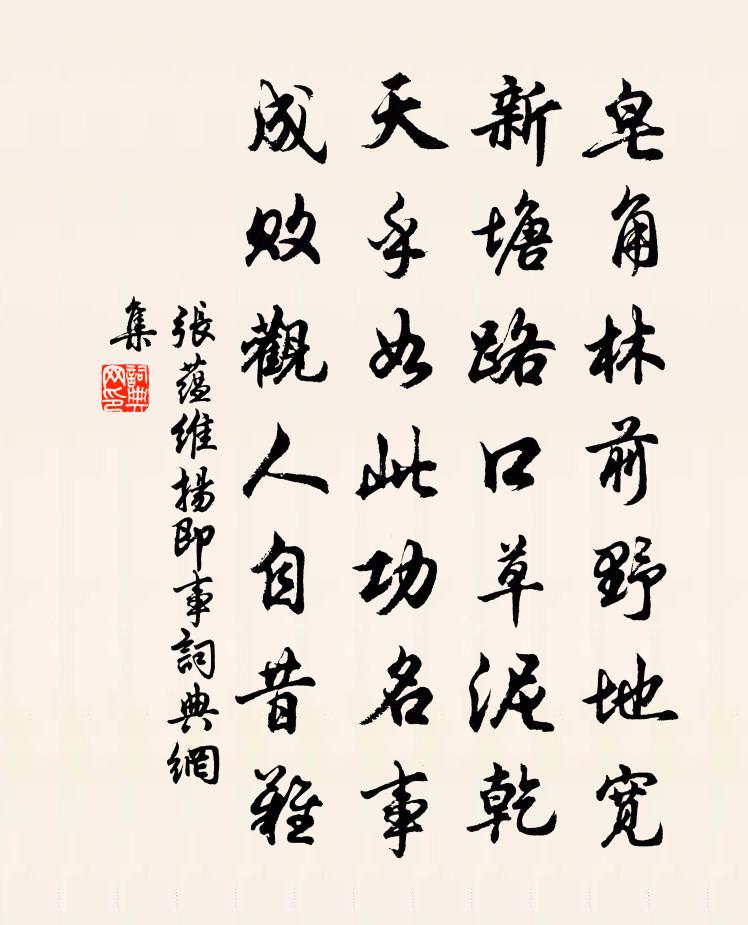 皂角林前野地寬
新塘路口草泥乾
天乎如此功名事
成敗觀人自昔難
張蘊維揚即事詞典網
集
詞典網印